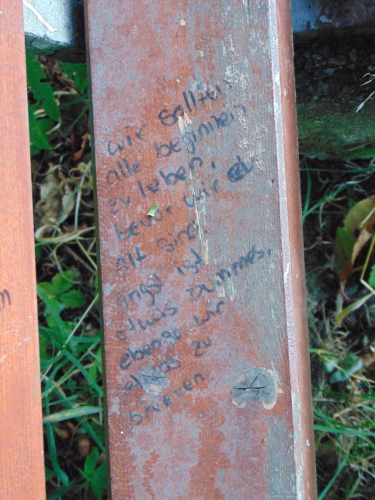 wir sollten
alle beginnen
zu leben,
bevor wir zu
alt sind
angst ist
etwas dummes,
ebenso wir
etwas zu